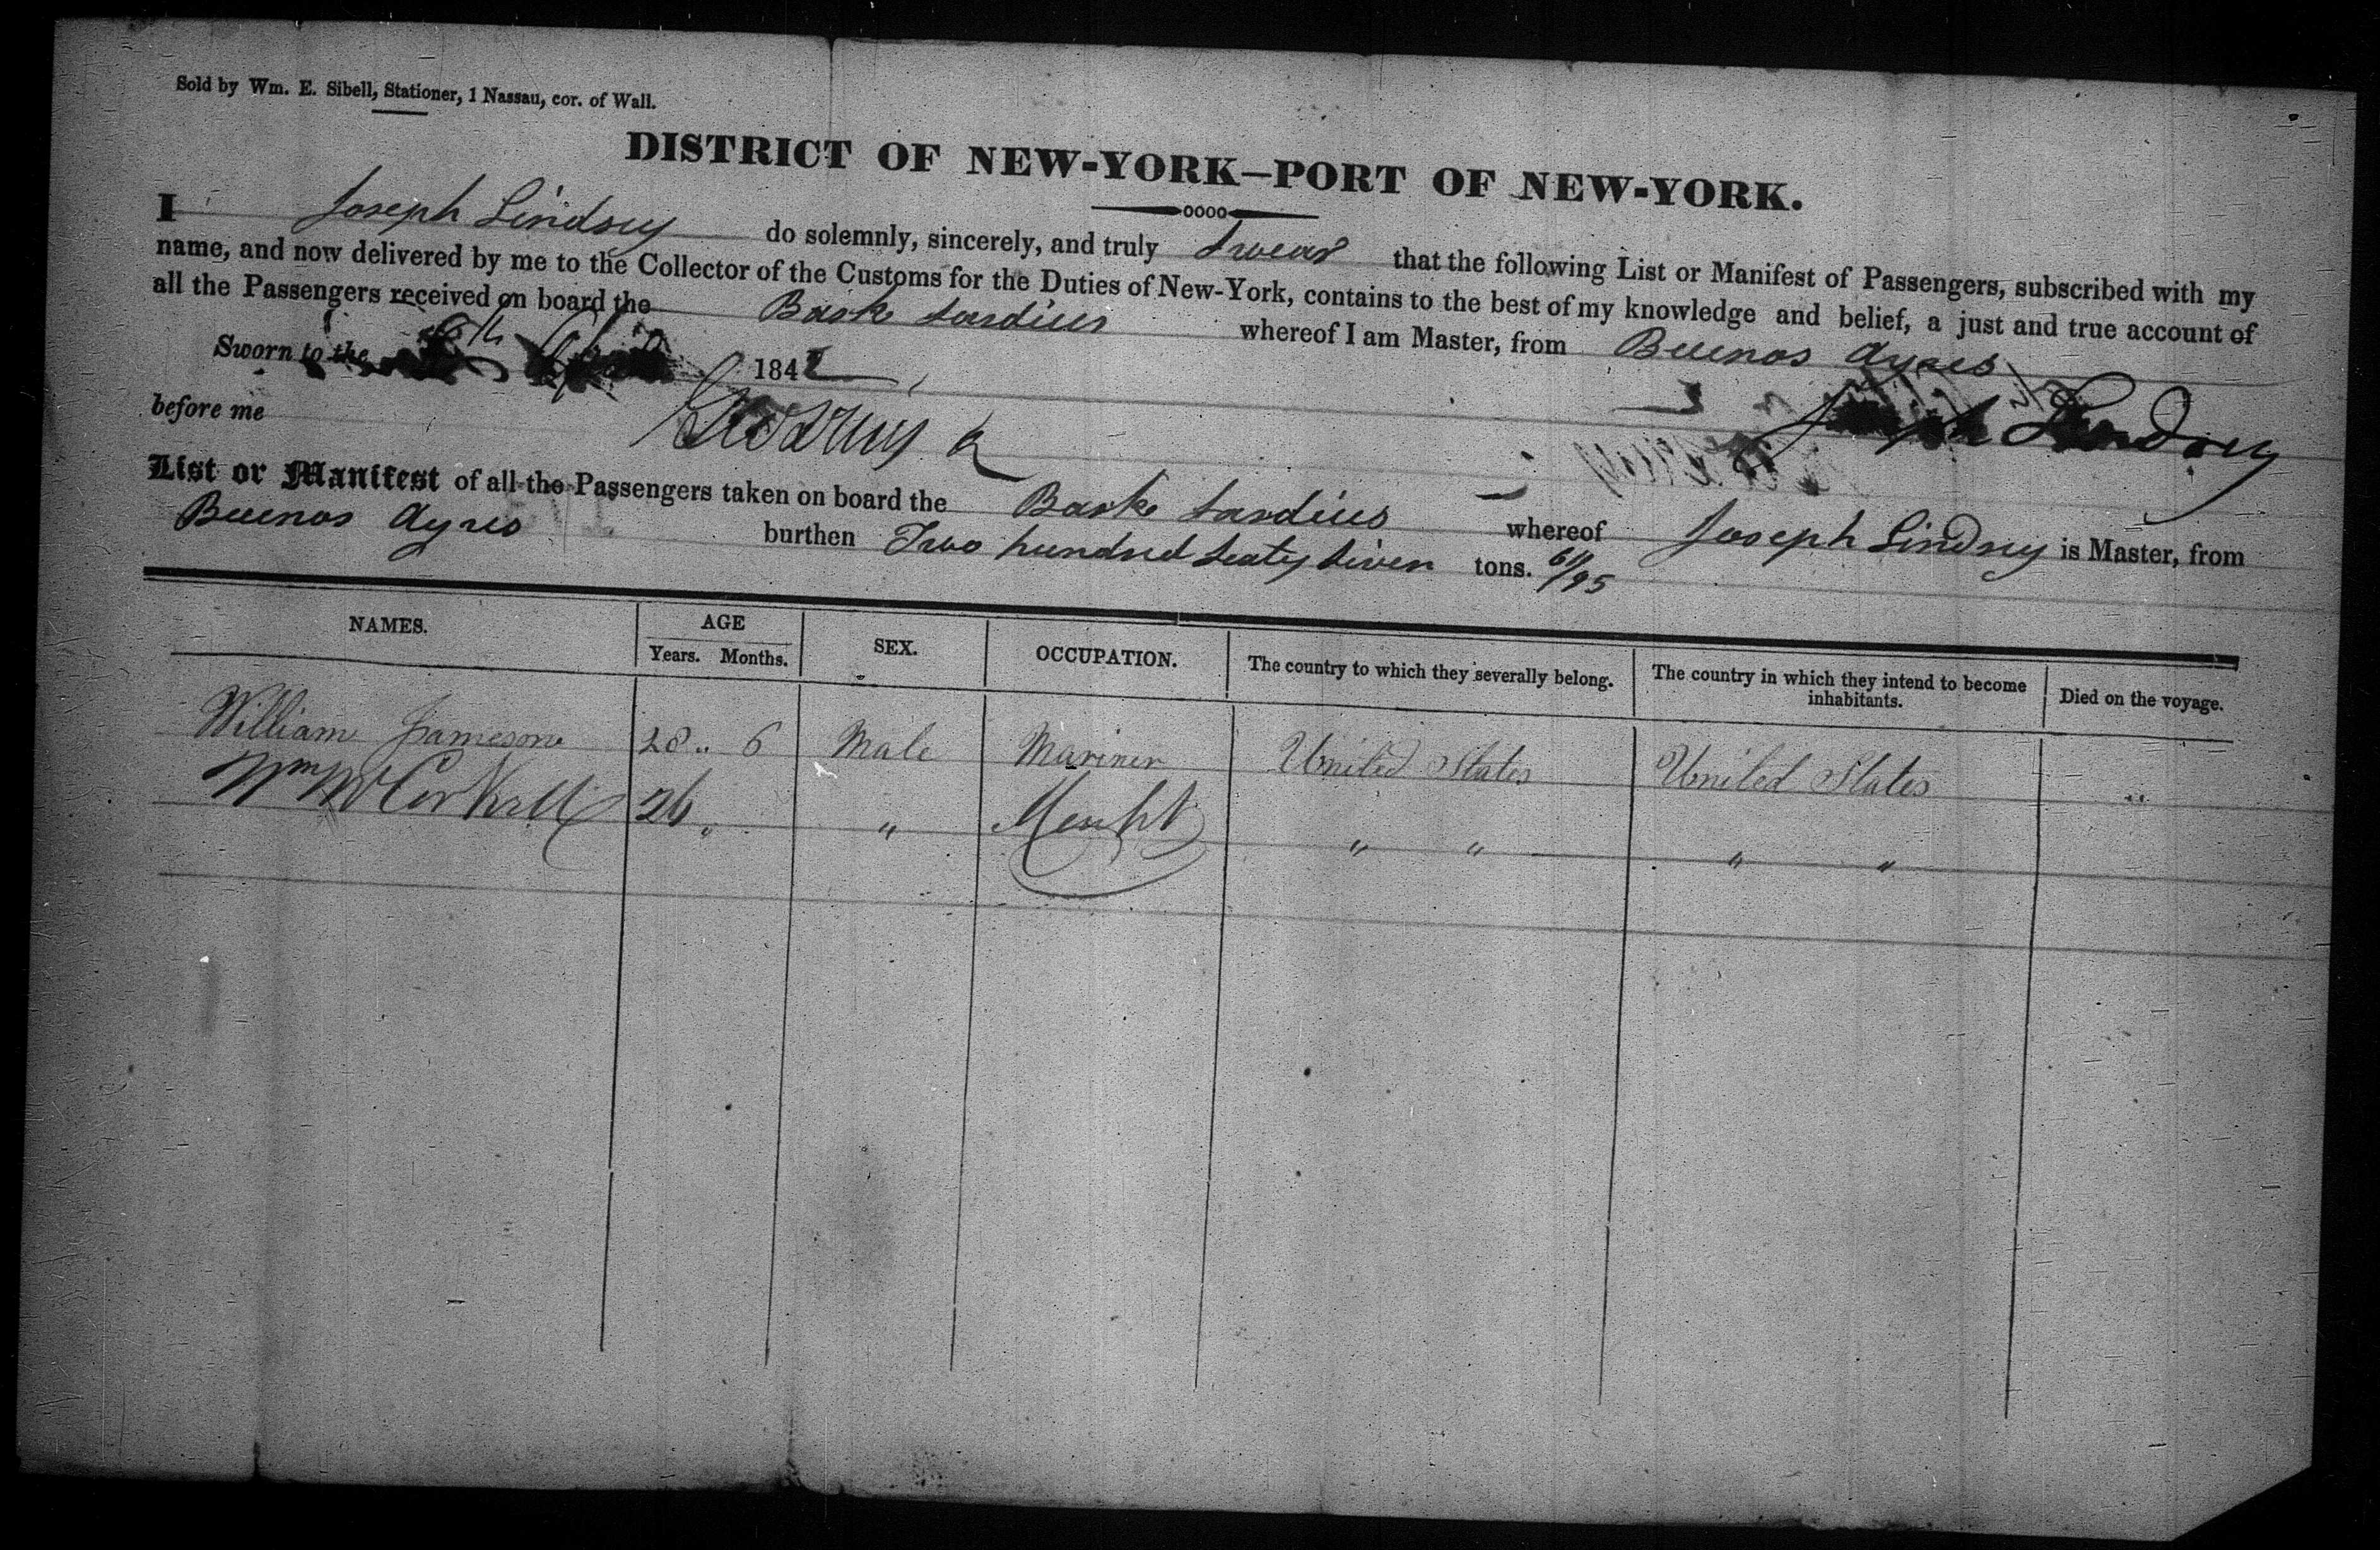 Sold by Wm. E. Sibell, Stationer, 1 Nassau, cor. of Wall.
DISTRICT OF NEW-YORK—PORT OF NEW-YORK.
I Joseph Lindsey do solemnly, sincerely, and truly swear that the following List or Manifest of Passengers, subscribed with my
name, and now delivered by me to the Collector of the Customs for the Duties of New-York, contains to the best of my knowledge and belief, a just and true account of
all the Passengers received on board the Bark Sardius whereof I am Master, from Buenos Ayres
Sworn to the 6th 1842
before me Joseph Lindsey
List or Manifest of all the Passengers taken on board the Bark Sardius whereof Joseph Lindsey is Master, from
Buenos Ayres burthen Two hundred sixty seven tons. /95
NAMES. AGE SEX. OCCUPATION. The country to which they severally belong. The country in which they intend to become inhabitants. Died on the voyage.
Years. Months.
William Jameson 28 " 6 Male Mariner United States United States "
Wm McCorkell 26 " " Mercht " " " "